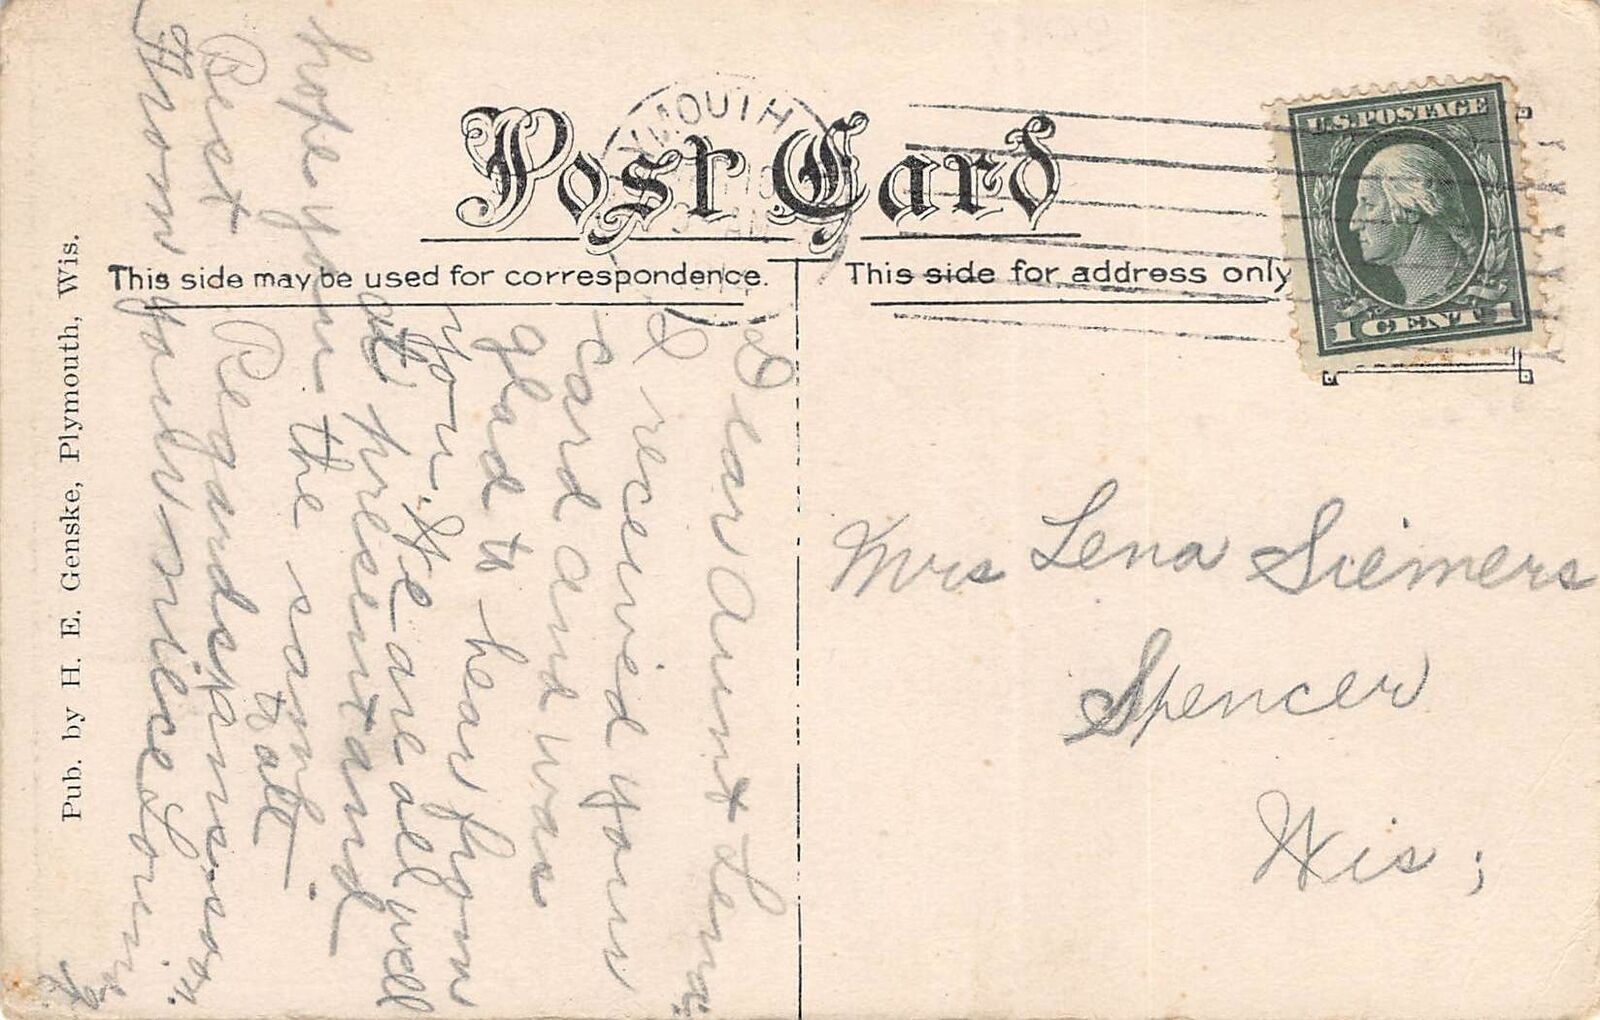 Post Card
YMOUTH
U.S. POSTAGE
1 CENT 1
This side may be used for correspondence.
This side for address only
Pub. by H. E. Genske, Plymouth, Wis.
Dear Aunt Lena;
I received your
card and was
glad to hear from
you. We are all well
at present and
hope you the same.
Best Regards to all
Ans. soon.
From your niece
Mrs Lena Siemers
Spencer
Wis;